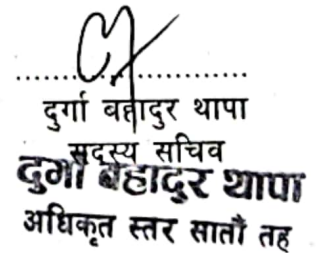 दुर्गा बहादुर थापा
सदस्य सचिव
दुर्गा बहादुर थापा
अधिकृत स्तर सातौं तह